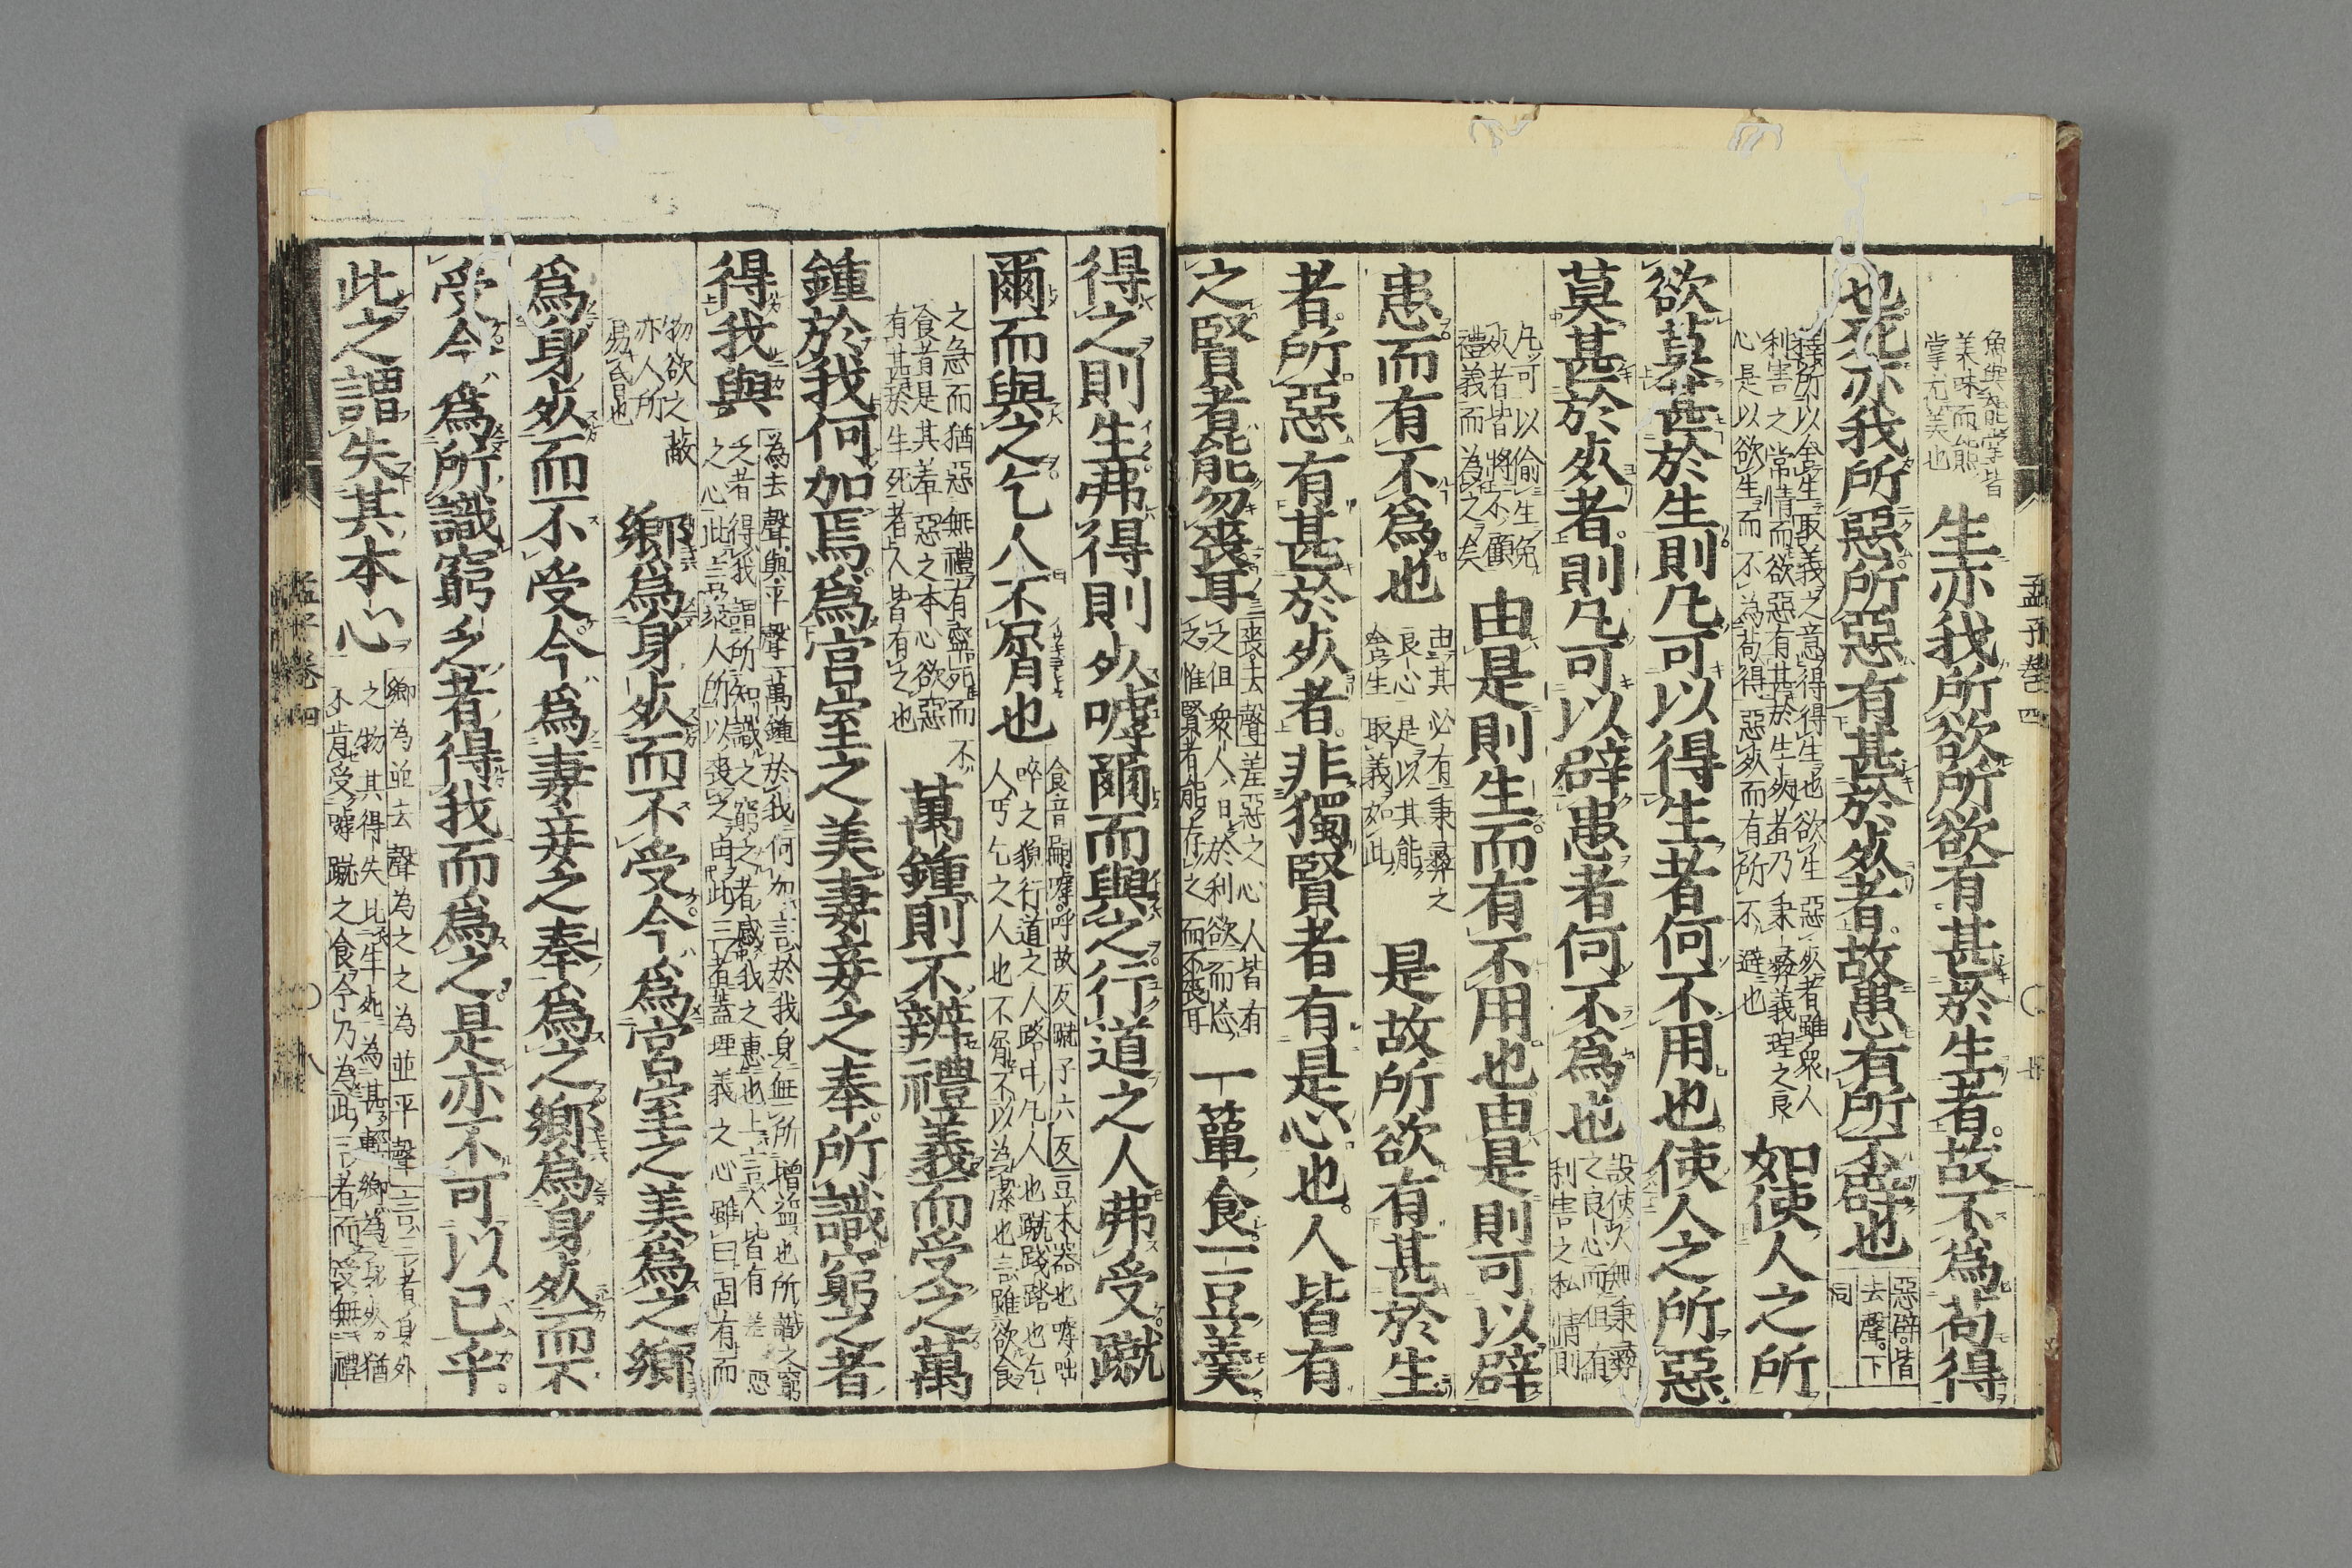 魚與熊掌皆
美味而熊
掌尤美也
生亦我所欲所欲有甚於生者故不爲苟得
也死亦我所惡所惡有甚於死者故患有所不辟也
惡辟皆
去聲下
同
釋所以舍生取義之意得得生也欲生惡死者雖衆人
利害之常情而欲惡有甚於生死者乃秉彝義理之良
心是以欲生而不為苟得惡死而有所不避也
如使人之所
欲莫甚於生則凡可以得生者何不用也使人之所惡
莫甚於死者則凡可以辟患者何不爲也
設使人無秉彝
之良心而但有
利害之私情則
凡可以偷生免
死者皆將不顧
禮義而為之矣
由是則生而有不用也由是則可以辟
患而有不爲也
由其必有秉彝之
良心是以其能
舍生取義如此
是故所欲有甚於生
者所惡有甚於死者非獨賢者有是心也人皆有
之賢者能勿喪耳
喪去聲羞惡之心人皆有
之但衆人汨於利欲而忘
之惟賢者能存之而不喪耳
一簞食一豆羹
孟子卷四
得之則生弗得則死嘑爾而與之行道之人弗受蹴
爾而與之乞人不屑也
食音嗣嘑呼故反蹴子六反豆木器也嘑咄
啐之貌行道之人路中凡人也蹴踐踏也乞
人丐乞之人也不屑不以為潔也言雖欲食
之急而猶惡無禮有寧死而不
食者是其羞惡之本心欲惡
有甚於生死者人皆有之也
萬鍾則不辨禮義而受之萬
鍾於我何加焉爲宮室之美妻妾之奉所識窮乏者
得我與
為去聲與平聲萬鍾於我何加言於我身無所增益也所識之窮
乏者得我謂所知識之窮乏者感我之惠也上言人皆有羞惡
之心此言衆人所以喪之由此三者蓋理義之心雖曰固有而
物欲之蔽
亦人所
易昏也
鄉爲身死而不受今爲宮室之美爲之鄉
爲身死而不受今爲妻妾之奉爲之鄉爲身死而不
受今爲所識窮乏者得我而爲之是亦不可以已乎
此之謂失其本心
鄉為並去聲為之之為並平聲言三者身外
之物其得失比生死為甚輕鄉為身死猶
不肯受嘑蹴之食今乃為此三者而受無禮
孟子卷四
八